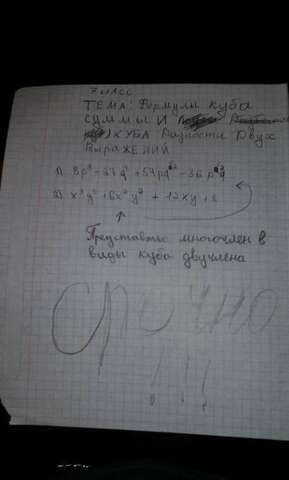 7 класс
ТЕМА: Формулы куба
СУММЫ И
КУБА Разности Двух
ВЫРАЖЕНИЙ
8p³ - 27q³ + 54pq² - 36p²q
x³y³ + 6x²y² + 12xy + 8
Представьте многочлен в
виды куба двучлена
срочно
!!!